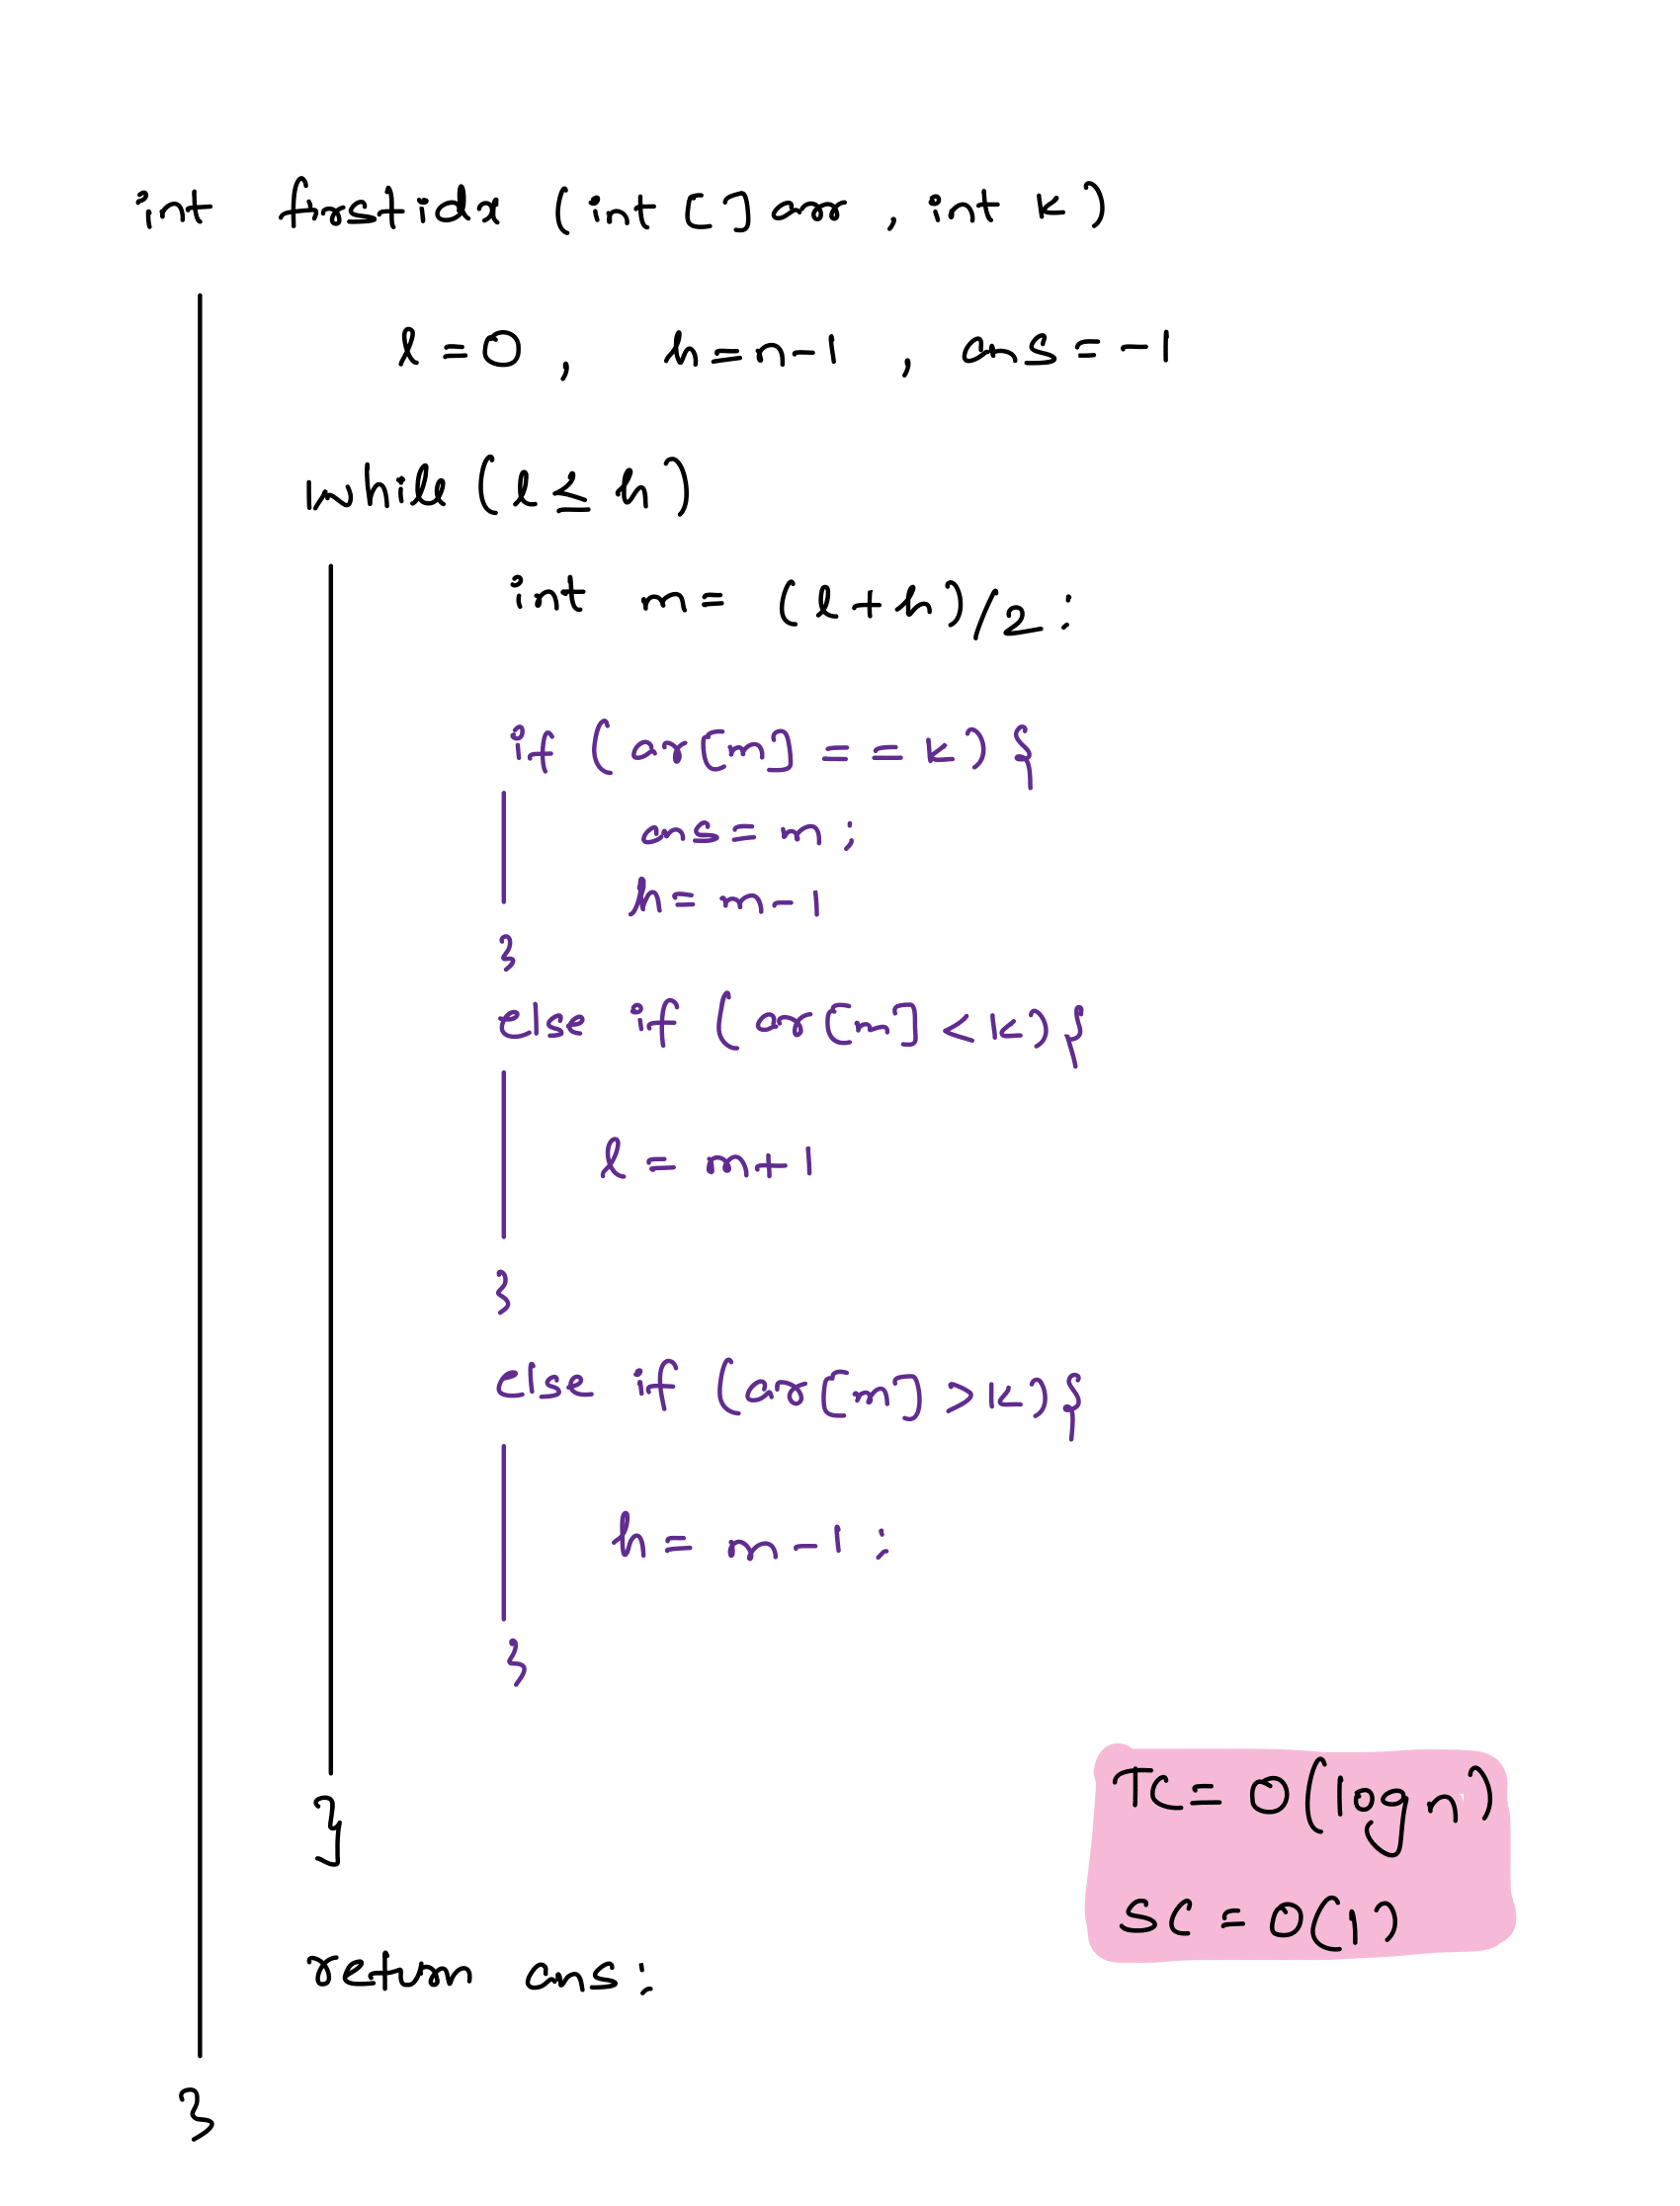 int firstidx (int [] arr , int k)
l = 0 , h = n-1 , ans = -1
while (l ≤ h)
int m = (l+h)/2 ;
if (ar[m] == k) {
ans = m ;
h = m-1
}
else if (ar[m] < k) {
l = m+1
}
else if (ar[m] > k) {
h = m-1 ;
}
}
return ans ;
}
TC = O(log n)
SC = O(1)